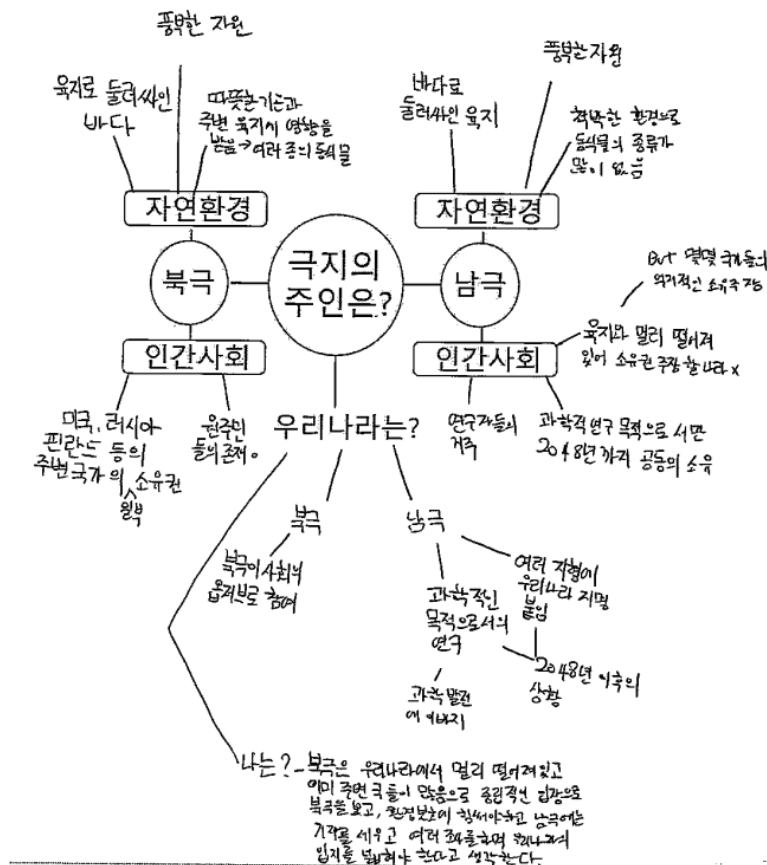 풍부한 자원
육지로 둘러싸인
바다
따뜻한 기온과
주변 육지의 영향을
받음 → 여러 종의 동식물
자연환경
북극
인간사회
미국, 러시아
핀란드 등의
주변국가의 소유권
일부
원주민
들의 존재.
극지의
주인은?
풍부한 자원
바다로
둘러싸인 육지
척박한 환경으로
동식물의 종류가
많이 없음
자연환경
남극
인간사회
But 몇몇 국가들의
억지적인 소유주장
육지와 멀리 떨어져
있어 소유권 주장 할 나라 x
연구자들의
거주
과학적 연구 목적으로서만
2048년까지 공동의 소유
우리나라는?
북극
북극이사회의
옵저버로 참여
남극
과학적인
목적으로서의
연구
과학 발전
에 이바지
여러 지형에
우리나라 지명
붙임
2048년 이후의
상황
나는? - 북극은 우리나라에서 멀리 떨어져있고
이미 주변국들이 많음으로 중립적인 입장으로
북극을 보고, 환경보호에 힘써야하고 남극에는
기지를 세우고 여러 하며 우리나라의
입지를 넓혀야 한다고 생각한다.